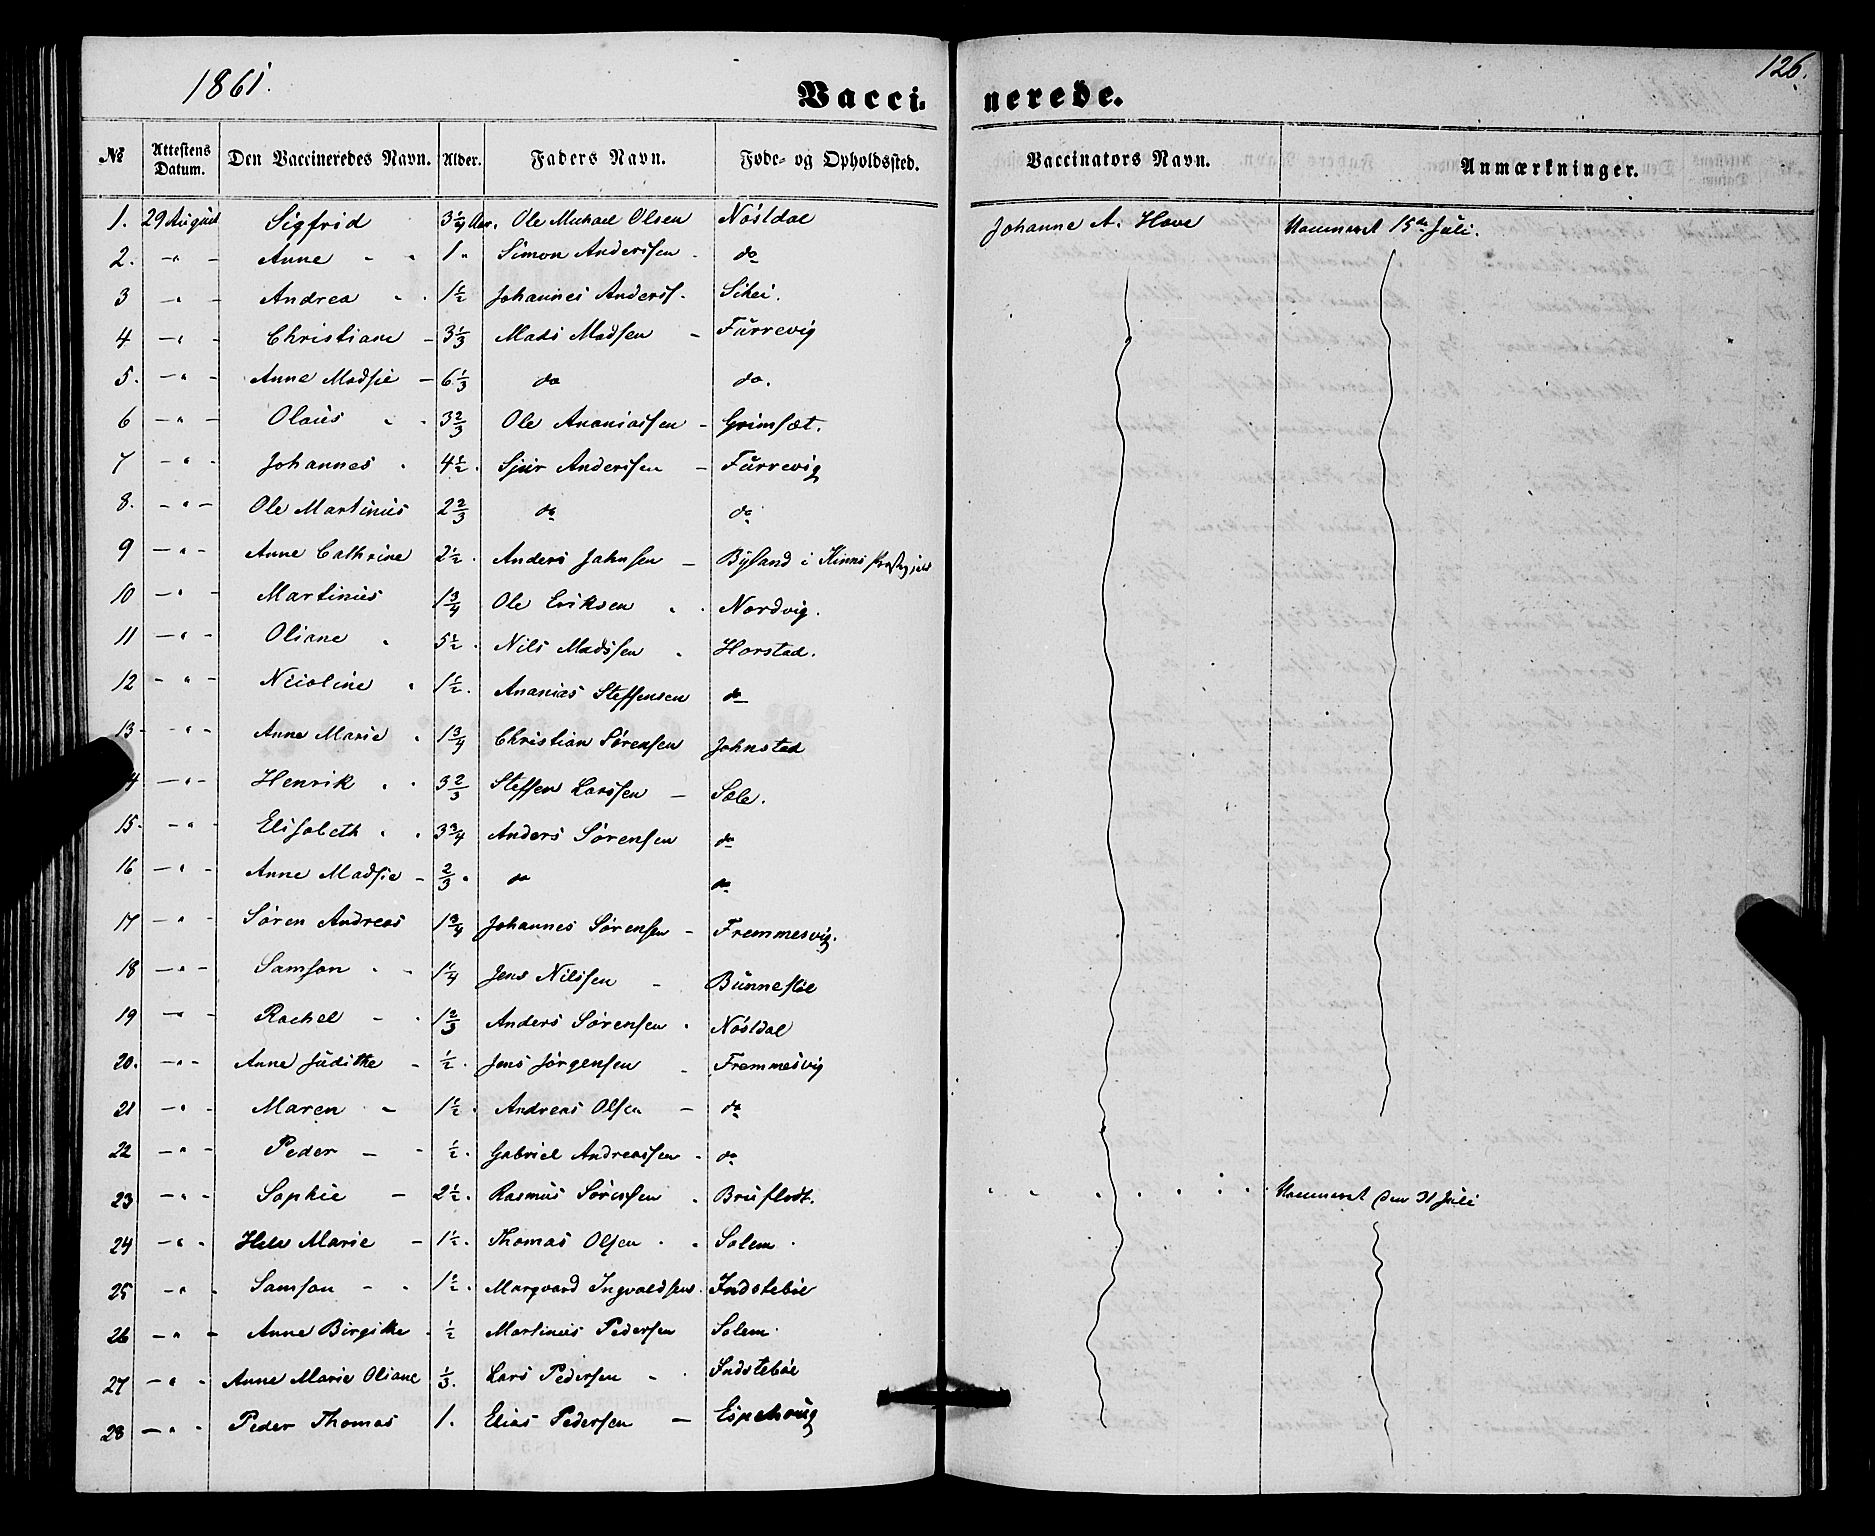 1861. Vaccinerede. 126.
№ Attestens Datum. Den Vaccineredes Navn. Alder. Faders Navn. Føde- og Opholdssted. Vaccinators Navn. Anmærkninger.
1. 29 August Sigfrid Aar. Ole Michael Olsen Nöstdal Johanne A. Hove Vaccineret 15de Juli.
2. -"- Anne 1 " Simon Anderssen do
3 -"- Andrea 1½ Johannes Anderss.
4 -"- Christiane - 3⅓ Mads Madsen - Furrevig
5. -"- Anne Madsie - 6⅓ do do.
6 -"- Olaus 3⅔ Ole Ananiassen - Grimsæt.
7 -"- Johannes 4½ Sjur Anderssen - Furrevig
8. -"- Ole Martinus 2⅔ do do
9 -"- Anne Cathrine 2½ Anders Johnsen - Byland i Kinns
10 -"- Martinus 1¾ Ole Eriksen Nordvig.
11 -"- Oliane 5½ Nils Madssen Horstad.
12 -"- Nicoline 1½ Ananias Steffensen do
13. -"- Anne Marie 1¾ Christian Sørensen Johnstad
4 -"- Henrik 3⅔ Steffen Larssen - Sæle.
15. -"- Elisabeth 3¾ Anders Sørensen do
16 -"- Anne Madsie - ⅔ do do
17 -"- Søren Andreas 1¾ Johannes Sørensen - Fremmesvig.
18 -"- Samson 1¼ Jens Nilssen -
19 -"- Rachel - 1⅔ Anders Sørensen Nöstdal
20. -"- Anne Judithe - ½ Jens Jörgensen - Fremmesvig
21 -"- Maren - 1½ Andreas Olsen - do
22 -"- Peder - ½ Gabriel Andreassen do
23 -"- Sophie - 2½ Rasmus Sørensen Bruflodt. " " " " " " Vaccineret den 31 Juli
24 -"- Marie - 1½ Thomas Olsen Solem
25 -"- Samson - 1½ Marqvard Ingvaldsen Indstebøe
26 -"- Anne Birgitte ½ Martinus Pedersen Solem
27 -"- Anne Marie Oliane ⅓ Lars Pedersen Indstebøe
28 -"- Peder Thomas 1. Elias Pedersen - Espehoug